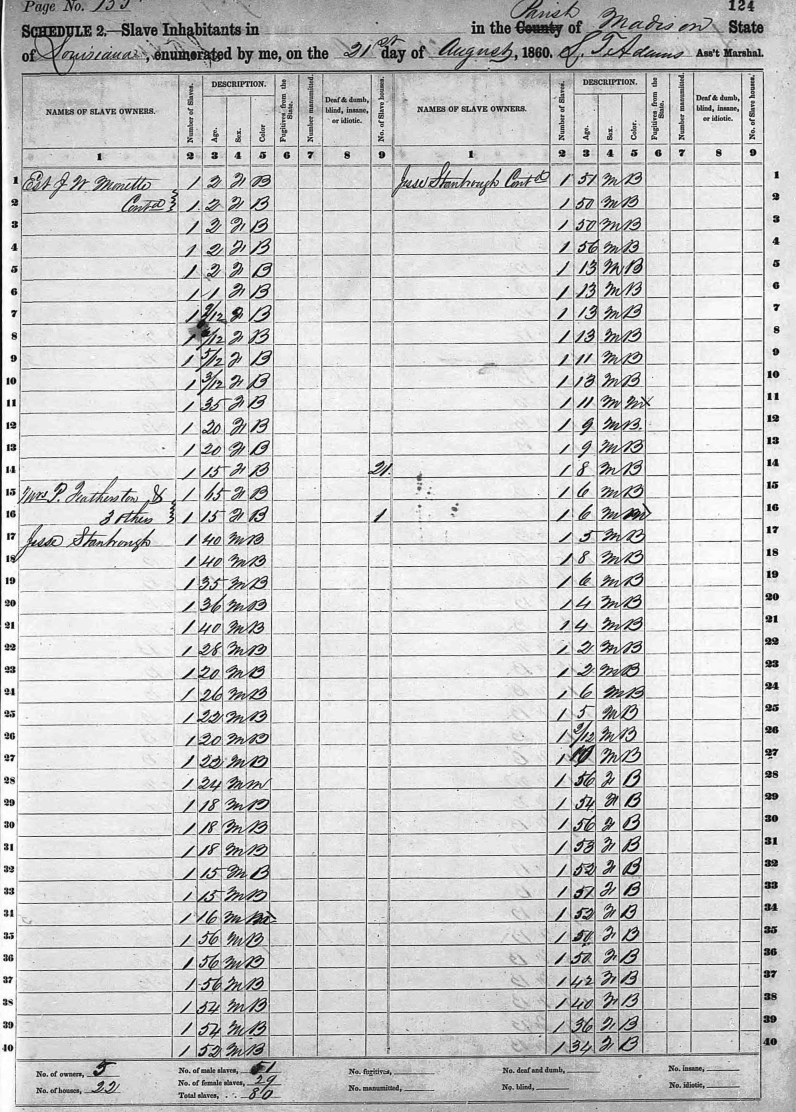 Page No. 155
124
SCHEDULE 2.—Slave Inhabitants in in the County Parish of Madison State
of Louisiana, enumerated by me, on the 21st day of August, 1860. L. T. Adams Ass't Marshal.
NAMES OF SLAVE OWNERS. Number of Slaves. DESCRIPTION. Age. Sex. Color Fugitives from the State. Number manumitted. Deaf & dumb, blind, insane, or idiotic. No. of Slave houses. NAMES OF SLAVE OWNERS. Number of Slaves. DESCRIPTION. Age. Sex. Color. Fugitives from the State. Number manumitted. Deaf & dumb, blind, insane, or idiotic. No. of Slave houses.
1 2 3 4 5 6 7 8 9 1 2 3 4 5 6 7 8 9
1 Est J W Monette 1 2 F B Jesse Stanbrough Cont'd 1 51 M B 1
2 Cont'd 1 2 F B 1 50 M B 2
3 1 2 F B 1 50 M B 3
4 1 2 F B 1 56 M B 4
5 1 2 F B 1 13 M B 5
6 1 1 F B 1 13 M B 6
7 1 /12 F B 1 13 M B 7
8 1 /12 F B 1 13 M B 8
9 1 5/12 F B 1 11 M B 9
10 1 3/12 F B 1 13 M B 10
11 1 35 F B 1 11 M M 11
12 1 20 F B 1 9 M B 12
13 1 20 F B 1 9 M B 13
14 1 15 F B 21 1 8 M B 14
15 Mrs P. Featherston & 1 65 F B 1 6 M B 15
16 3 others 1 15 F B 1 1 6 M 16
17 Jesse Stanbrough 1 40 M B 1 5 M B 17
18 1 40 M B 1 8 M B 18
19 1 35 M B 1 6 M B 19
20 1 36 M B 1 4 M B 20
21 1 40 M B 1 4 M B 21
22 1 28 M B 1 2 M B 22
23 1 20 M B 1 2 M B 23
24 1 26 M B 1 6 M B 24
25 1 22 M B 1 5 M B 25
26 1 20 M B 1 /12 M B 26
27 1 22 M B 1 M B 27
28 1 24 M M 1 56 F B 28
29 1 18 M B 1 54 F B 29
30 1 18 M B 1 56 F B 30
31 1 18 M B 1 53 F B 31
32 1 15 M B 1 52 F B 32
33 1 15 M B 1 51 F B 33
34 1 16 M 1 52 F B 34
35 1 56 M B 1 50 F B 35
36 1 56 M B 1 50 F B 36
37 1 56 M B 1 42 F B 37
38 1 54 M B 1 40 F B 38
39 1 54 M B 1 36 F B 39
40 1 52 M B 1 34 F B 40
No. of owners, 5 No. of male slaves, 51 No. fugitives, No. deaf and dumb, No. insane,
No. of houses, 22 No. of female slaves, 29 No. manumitted, No. blind, No. idiotic,
Total slaves, 80